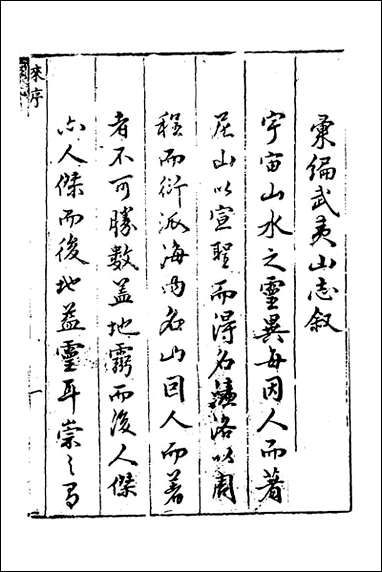 彙編武夷山志叙
宇宙山水之靈異每因人而著
尼山以宣聖而得名濂洛以周
程而衍派海内名山因人而著
者不可勝數盖地靈而後人傑
亦人傑而後地益靈耳崇之有
來序
一